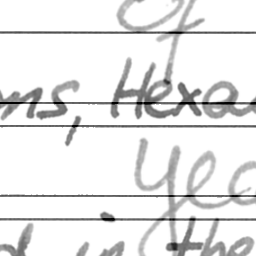 of
ms, Hexa
yea
d in the